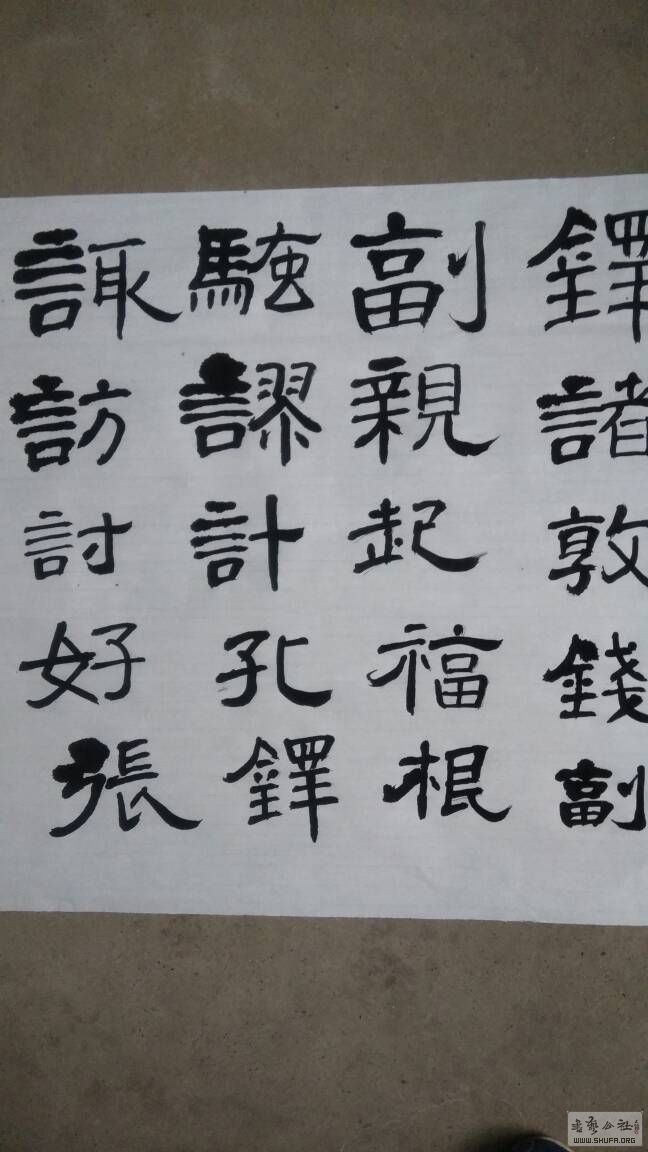 鐸諸敦錢副
副親起福根
謬計孔鐸
諏訪討好張
书艺公社
WWW.SHUFA.ORG